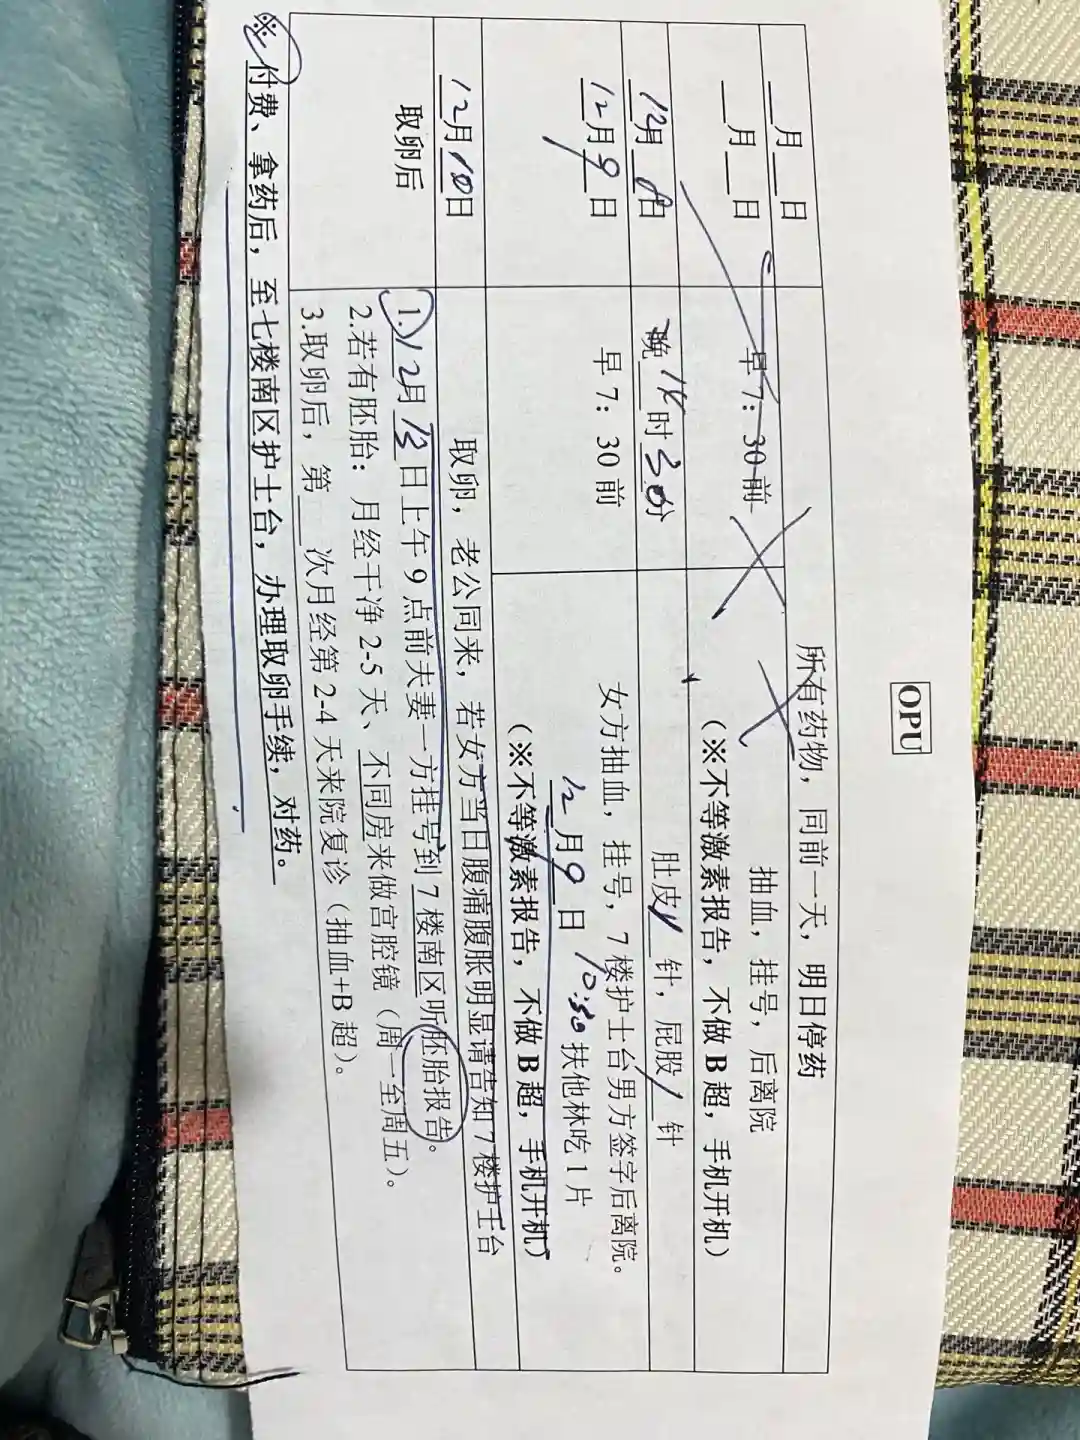 OPU
__月__日
所有药物，同前一天，明日停药
__月__日
早7：30前
抽血，挂号，后离院
（※不等激素报告，不做B超，手机开机）
12月8日
晚 时30分
肚皮1针，屁股1针
12月9日
早7：30前
女方抽血，挂号，7楼护士台男方签字后离院。
12月9日 10:30 扶他林吃1片
（※不等激素报告，不做B超，手机开机）
12月10日
取卵，老公同来，若女方当日腹痛腹胀明显请告知7楼护士台
取卵后
1.12月13日上午9点前夫妻一方挂号到7楼南区听胚胎报告。
2.若有胚胎：月经干净2-5天、不同房来做宫腔镜（周一至周五）。
3.取卵后，第__次月经第2-4天来院复诊（抽血+B超）。
※付费、拿药后，至七楼南区护士台，办理取卵手续，对药。